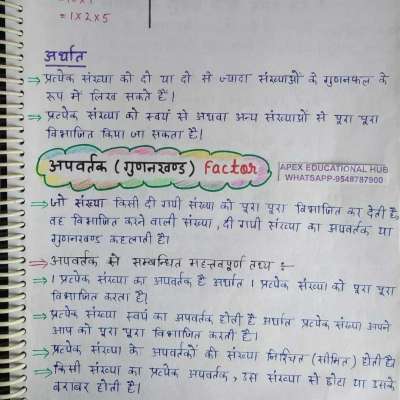 = 1 × 2 × 5
अर्थात
⇒ प्रत्येक संख्या को दो या दो से ज्यादा संख्याओं के गुणनफल के
रूप में लिख सकते हैं।
⇒ प्रत्येक संख्या को स्वयं से अथवा अन्य संख्याओं से पूरा पूरा
विभाजित किया जा सकता है।
अपवर्तक (गुणनखण्ड) Factor
APEX EDUCATIONAL HUB
WHATSAPP-9548787900
⇒ जो संख्या किसी दी गयी संख्या को पूरा पूरा विभाजित कर देती है,
वह विभाजित करने वाली संख्या, दी गयी संख्या का अपवर्तक या
गुणनखण्ड कहलाती है।
⇒ अपवर्तक से सम्बन्धित महत्वपूर्ण तथ्य :-
⇒ 1 प्रत्येक संख्या का अपवर्तक है अर्थात 1 प्रत्येक संख्या को पूरा पूरा
विभाजित करता है।
⇒ प्रत्येक संख्या स्वयं का अपवर्तक होती है अर्थात प्रत्येक संख्या अपने
आप को पूरा पूरा विभाजित करती है।
⇒ प्रत्येक संख्या के अपवर्तकों की संख्या निश्चित (सीमित) होती है।
⇒ किसी संख्या का प्रत्येक अपवर्तक, उस संख्या से छोटा या उसके
बराबर होती है।